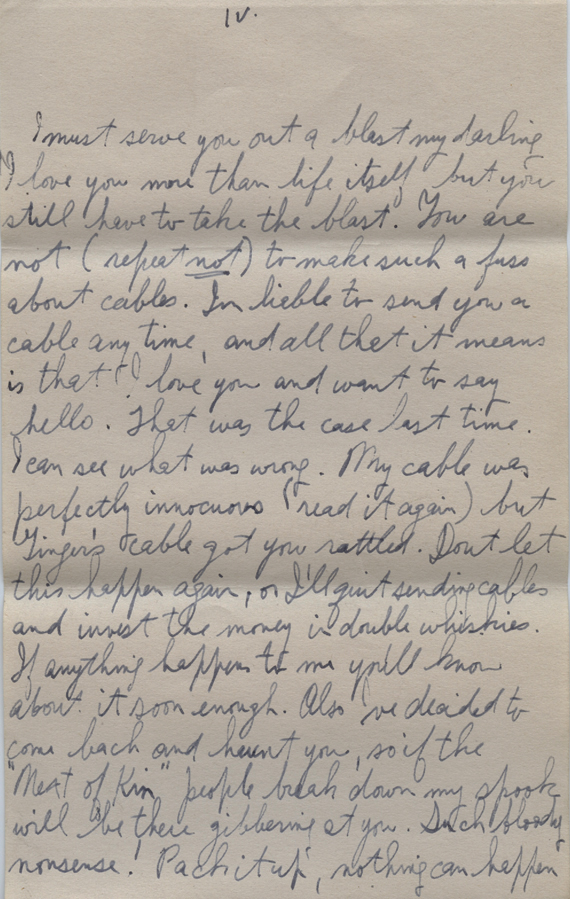 IV.
I must serve you out a blast my darling
I love you more than life itself, but you
still have to take the blast. You are
not (repeat not) to make such a fuss
about cables. Im lieble to send you a
cable any time, and all that it means
is that I love you and want to say
hello. That was the case last time.
I can see what was wrong. My cable was
perfectly innocuous (read it again) but
Ginger's cable got you rattled. Dont let
this happen again, or I'll quit sending cables
and invest the money in double whiskies.
If anything happens to me you'll know
about it soon enough. Also I've decided to
come back and haunt you, so if the
"Next of Kin" people break down my spook
will be there gibbering at you. Such bloody
nonsense! Pack it up, nothing can happen